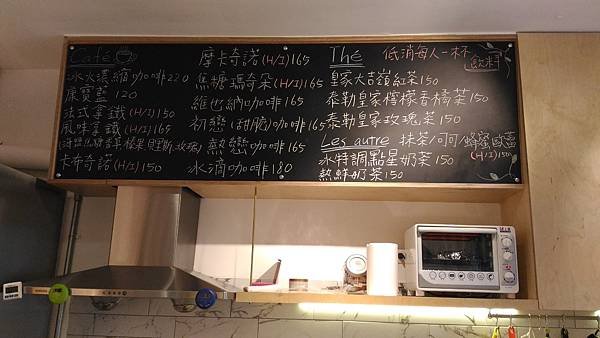 Café
冰火濃縮咖啡220
康寶藍 120
法式拿鐵(H/I)150
風味拿鐵(H/I)165
卡布奇諾(H/I)150
摩卡奇諾(H/I)165
焦糖瑪奇朵(H/I)165
維也納咖啡165
初戀(甜脆)咖啡165
熱戀咖啡165
冰滴咖啡180
Thé
低消每人一杯
飲料
皇家大吉嶺紅茶150
泰勒皇家檸檬香橘茶150
泰勒皇家玫瑰茶150
Les autre
抹茶/可可/蜂蜜歐蕾
(H/I)150
冰特調點星奶茶150
熱鮮奶茶150